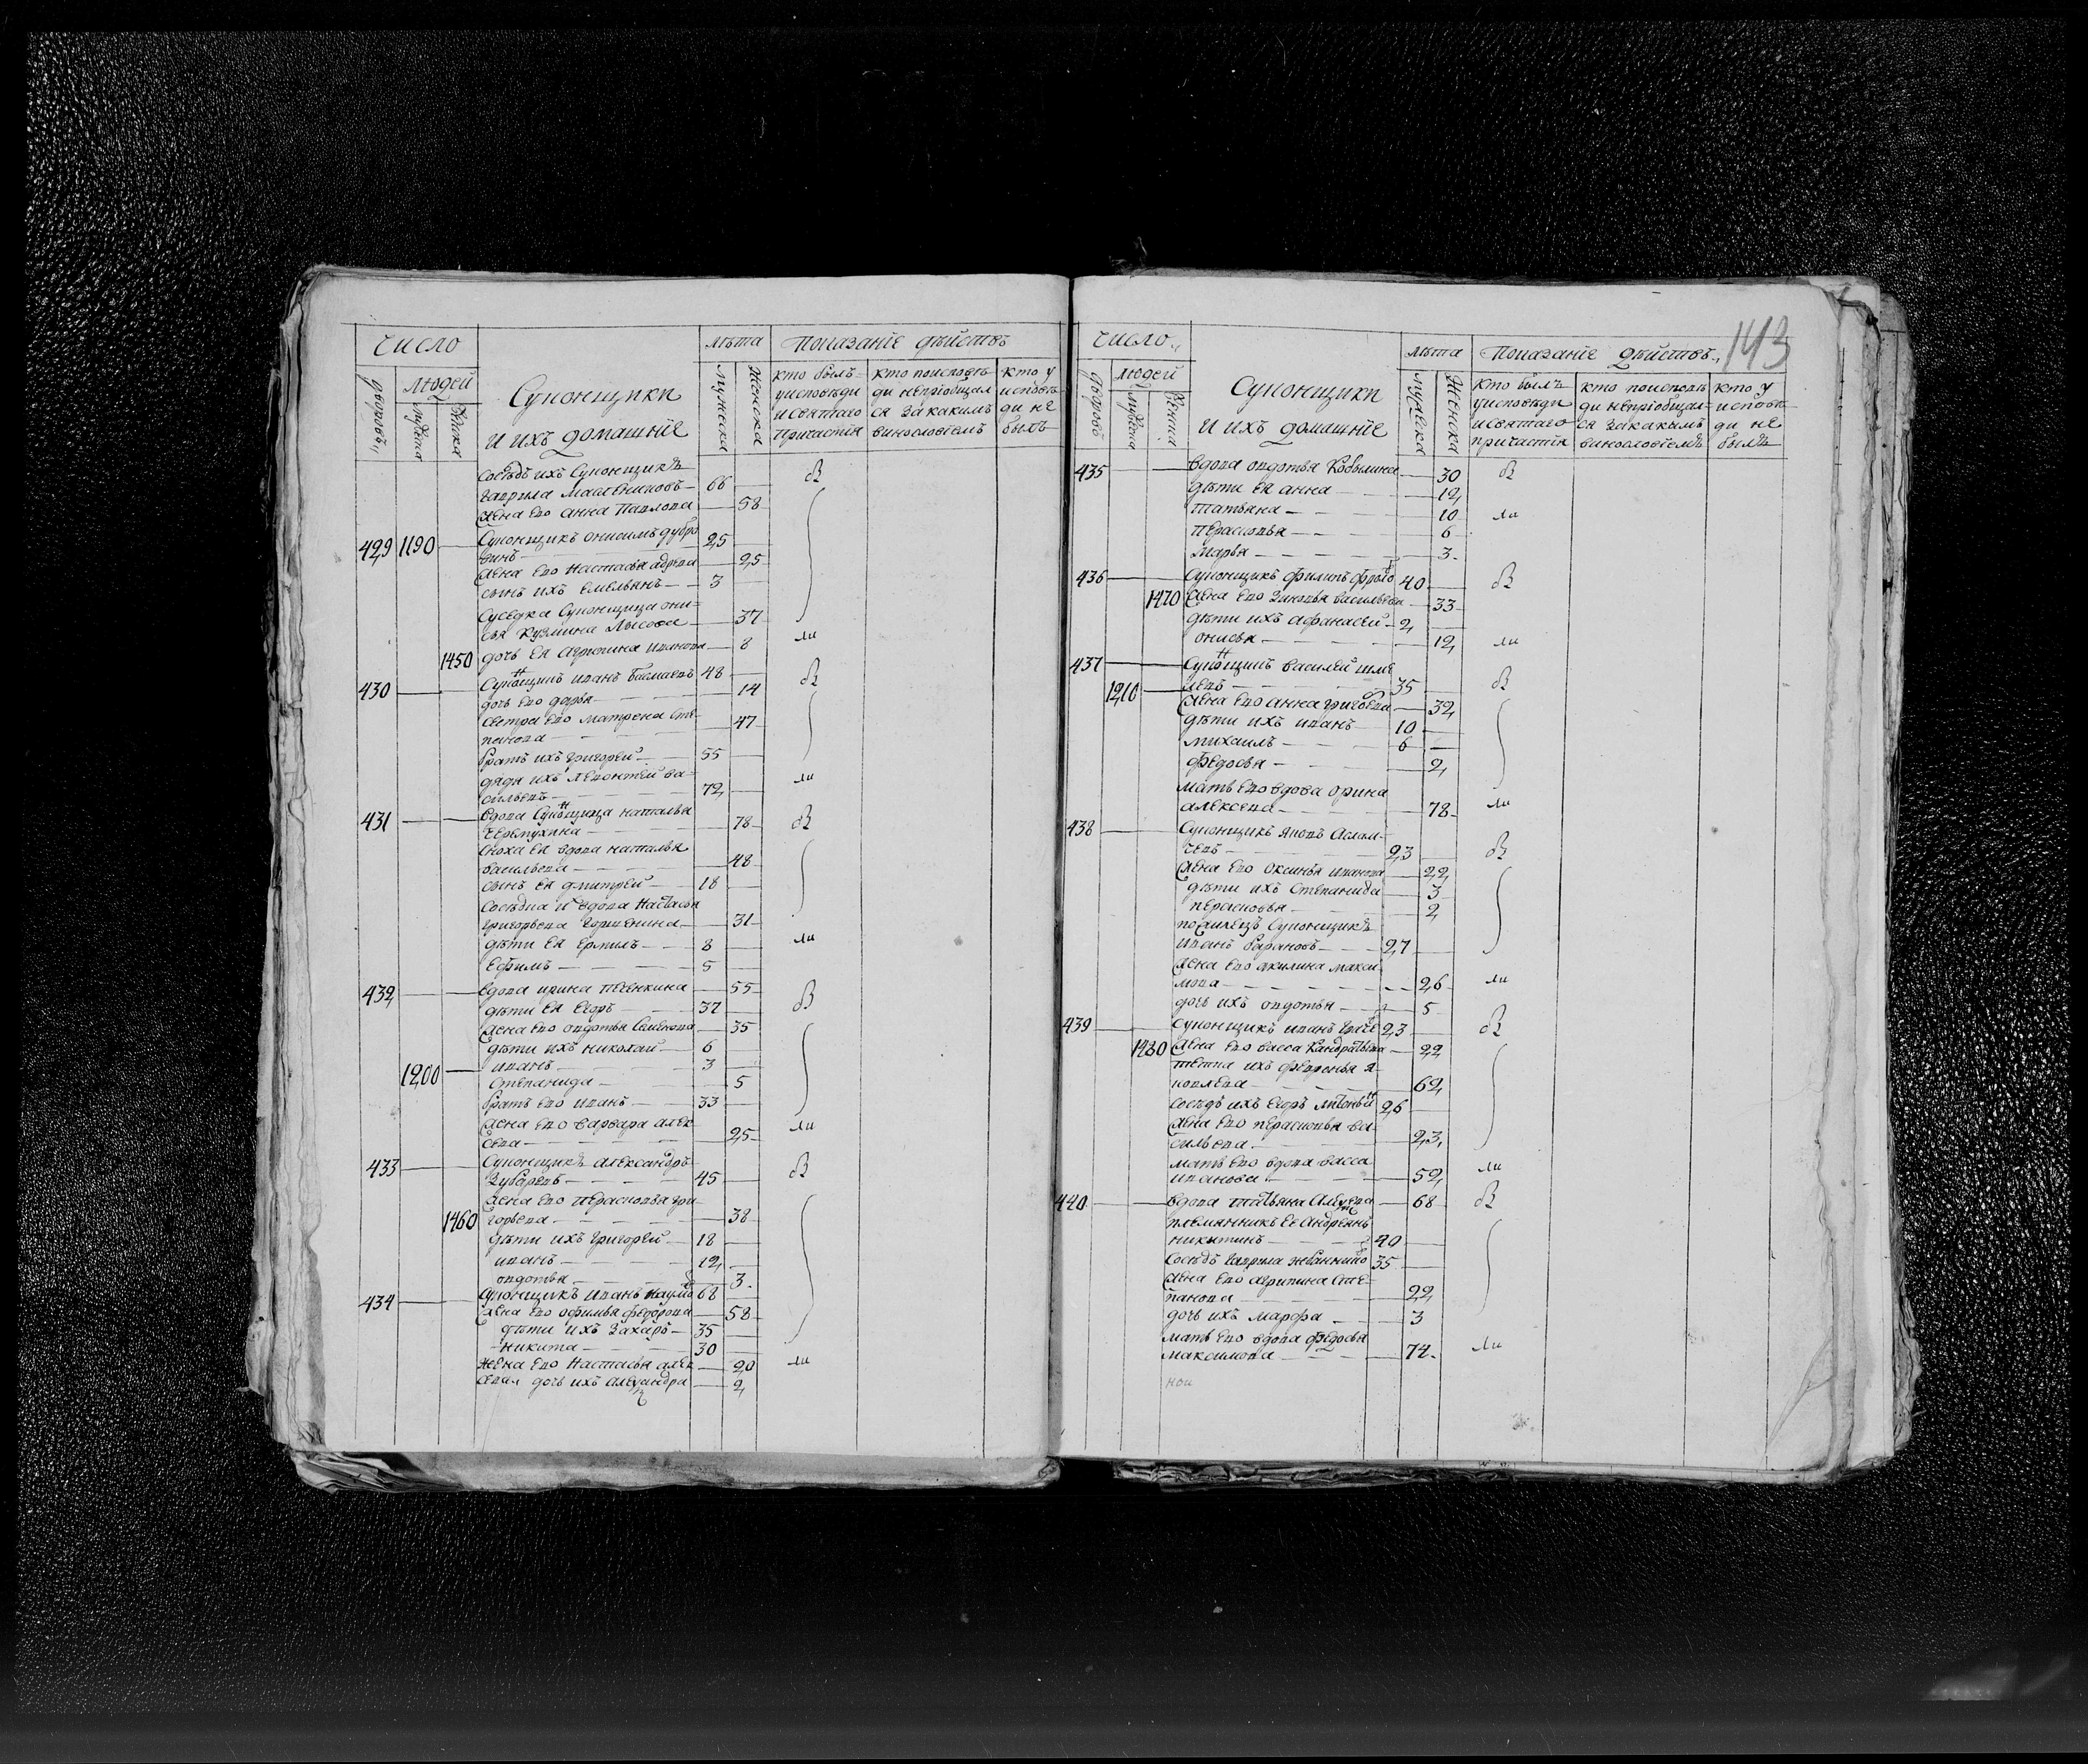 число
людей
дворовъ
мужска
женска
Суконщики
и ихъ домашніе
лѣта
мужска
женска
Показаніе дѣйствъ
кто былъ
у исповѣди
и святаго
причастія
кто поисповѣ
ди непріобщал
ся за какимъ
винословіемъ
кто у
исповѣ
ди не
былъ
сосѣдъ ихъ Суконщикъ
гаврила Маслениковъ — 66
жена ево анна Павлова — 58
429 1190 Суконщикъ онисимъ дубро
винъ — 25
жена ево настасья — 25
сынъ ихъ емельянъ — 3
суседка Суконщица они=
сья кузмина Лысова — 37
1450 дочь ея агрипина иванова — 8
430 Суконщикъ иванъ — 48
дочь ево дарья — 14
сестра ево матрена сте=
панова — 47
братъ ихъ григорей — 55
дядя ихъ леонтей ва=
сильевъ — 72
431 вдова Суконщица наталья
черемухина — 78
сноха ея вдова наталья
васильева — 48
сынъ ея дмитрей — 18
сосѣдка и вдова настасья
григорьева — 31
дѣти ея ермилъ — 8
ефимъ — 5
432 вдова ирина песенкина — 55
дѣти ея егоръ — 37
жена ево овдотья семенова — 35
дѣти ихъ николай — 6
1200 иванъ — 3
степанида — 5
братъ ево иванъ — 33
жена ево варвара алек
сева — 25
433 Суконщикъ александръ
Зубаревъ — 45
жена ево перасковья гри
1460 горьева — 38
дѣти ихъ григорей — 18
иванъ — 12
овдотья — 3
434 суконщикъ иванъ наумо — 68
жена ево офимья федорова — 58
дѣти ихъ захаръ — 35
никита — 30
жена ево настасья алек — 20
сева дочь ихъ александра — 2
143
число
людей
дворовъ
мужска
женска
Суконщики
и ихъ домашніе
лѣта
мужска
женска
Показаніе дѣйствъ
кто былъ
у исповѣди
и святаго
причастія
кто поисповѣ
ди непріобщал=
ся за какимъ
винословіемъ
кто у
исповѣ=
ди не
былъ
435 вдова овдотья Кобылина — 30
дѣти ея анна — 12
татьяна — 10
перасковья — 6
марья — 3
436 Суконщикъ филипъ фроло — 40
1470 жена ево зиновья васильева — 33
дѣти ихъ афанасей — 2
онисья — 12
437 Суконщикъ василей шме
1210 левъ — 35
жена ево анна григорева — 32
дѣти ихъ иванъ — 10
михаилъ — 6
федосья — 2
мать ево вдова орина
алексева — 78
438 Суконщикъ яковъ
23
жена ево оксинья иванова — 22
дѣти ихъ степанида — 3
перасковья — 2
Суконщикъ
иванъ барановъ — 27
жена ево акилина макси
мова — 26
дочь ихъ овдотья — 5
439 суконщикъ иванъ — 23
1480 жена ево васса кандратьева — 22
тетка ихъ февронья я
ковлева — 62
сосѣдъ ихъ егоръ — 26
жена ево перасковья ва
сильева — 23
мать ево вдова васса
иванова — 52
440 вдова татьяна — 68
племянникъ ее андреянъ
никитинъ — 40
сосѣдъ гаврила — 35
жена ево агрипина сте=
панова — 22
дочь ихъ марфа — 3
мать ево вдова федосья
максимова — 74